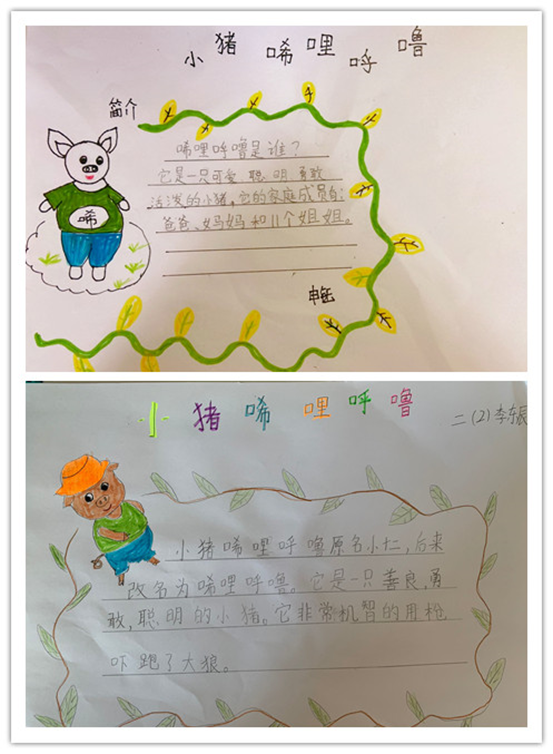 小猪唏哩呼噜
简介
唏哩呼噜是谁？
它是一只可爱、聪明、勇敢
活泼的小猪，它的家庭成员有：
爸爸、妈妈和11个姐姐。
唏
小猪唏哩呼噜
二（2）李东辰
小猪唏哩呼噜原名小十二，后来
改名为唏哩呼噜。它是一只善良，勇
敢，聪明的小猪。它非常机智的用枪
吓跑了大狼。